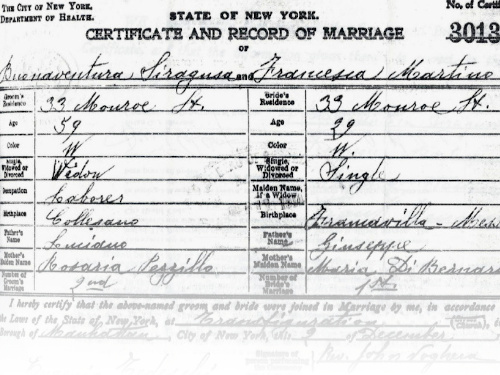 THE CITY OF NEW YORK. STATE OF NEW YORK. No. of Certif
DEPARTMENT OF HEALTH. CERTIFICATE AND RECORD OF MARRIAGE 3013
OF
Buonaventura Siragusa and Francesca Martino
Groom's Residence 33 Monroe St. Bride's Residence 33 Monroe St.
Age 59 Age 29
Color W Color W.
Single, Widowed or Divorced Widow Single, Widowed or Divorced Single
Occupation Laborer Maiden Name, if a Widow
Birthplace Collesano Birthplace Francavilla -
Father's Name Luciano Father's Name Giuseppe
Mother's Maiden Name Rosaria Mother's Maiden Name Maria Di Bernar
Number of Groom's Marriage 2nd Number of Bride's Marriage 1st.
I hereby certify that the above-named groom and bride were joined in Marriage by me, in accordance
the Laws of the State of New York, at Transfiguration (Church,
Borough of Manhattan, City of New York, this of December
Signature of Rev. John Voghera